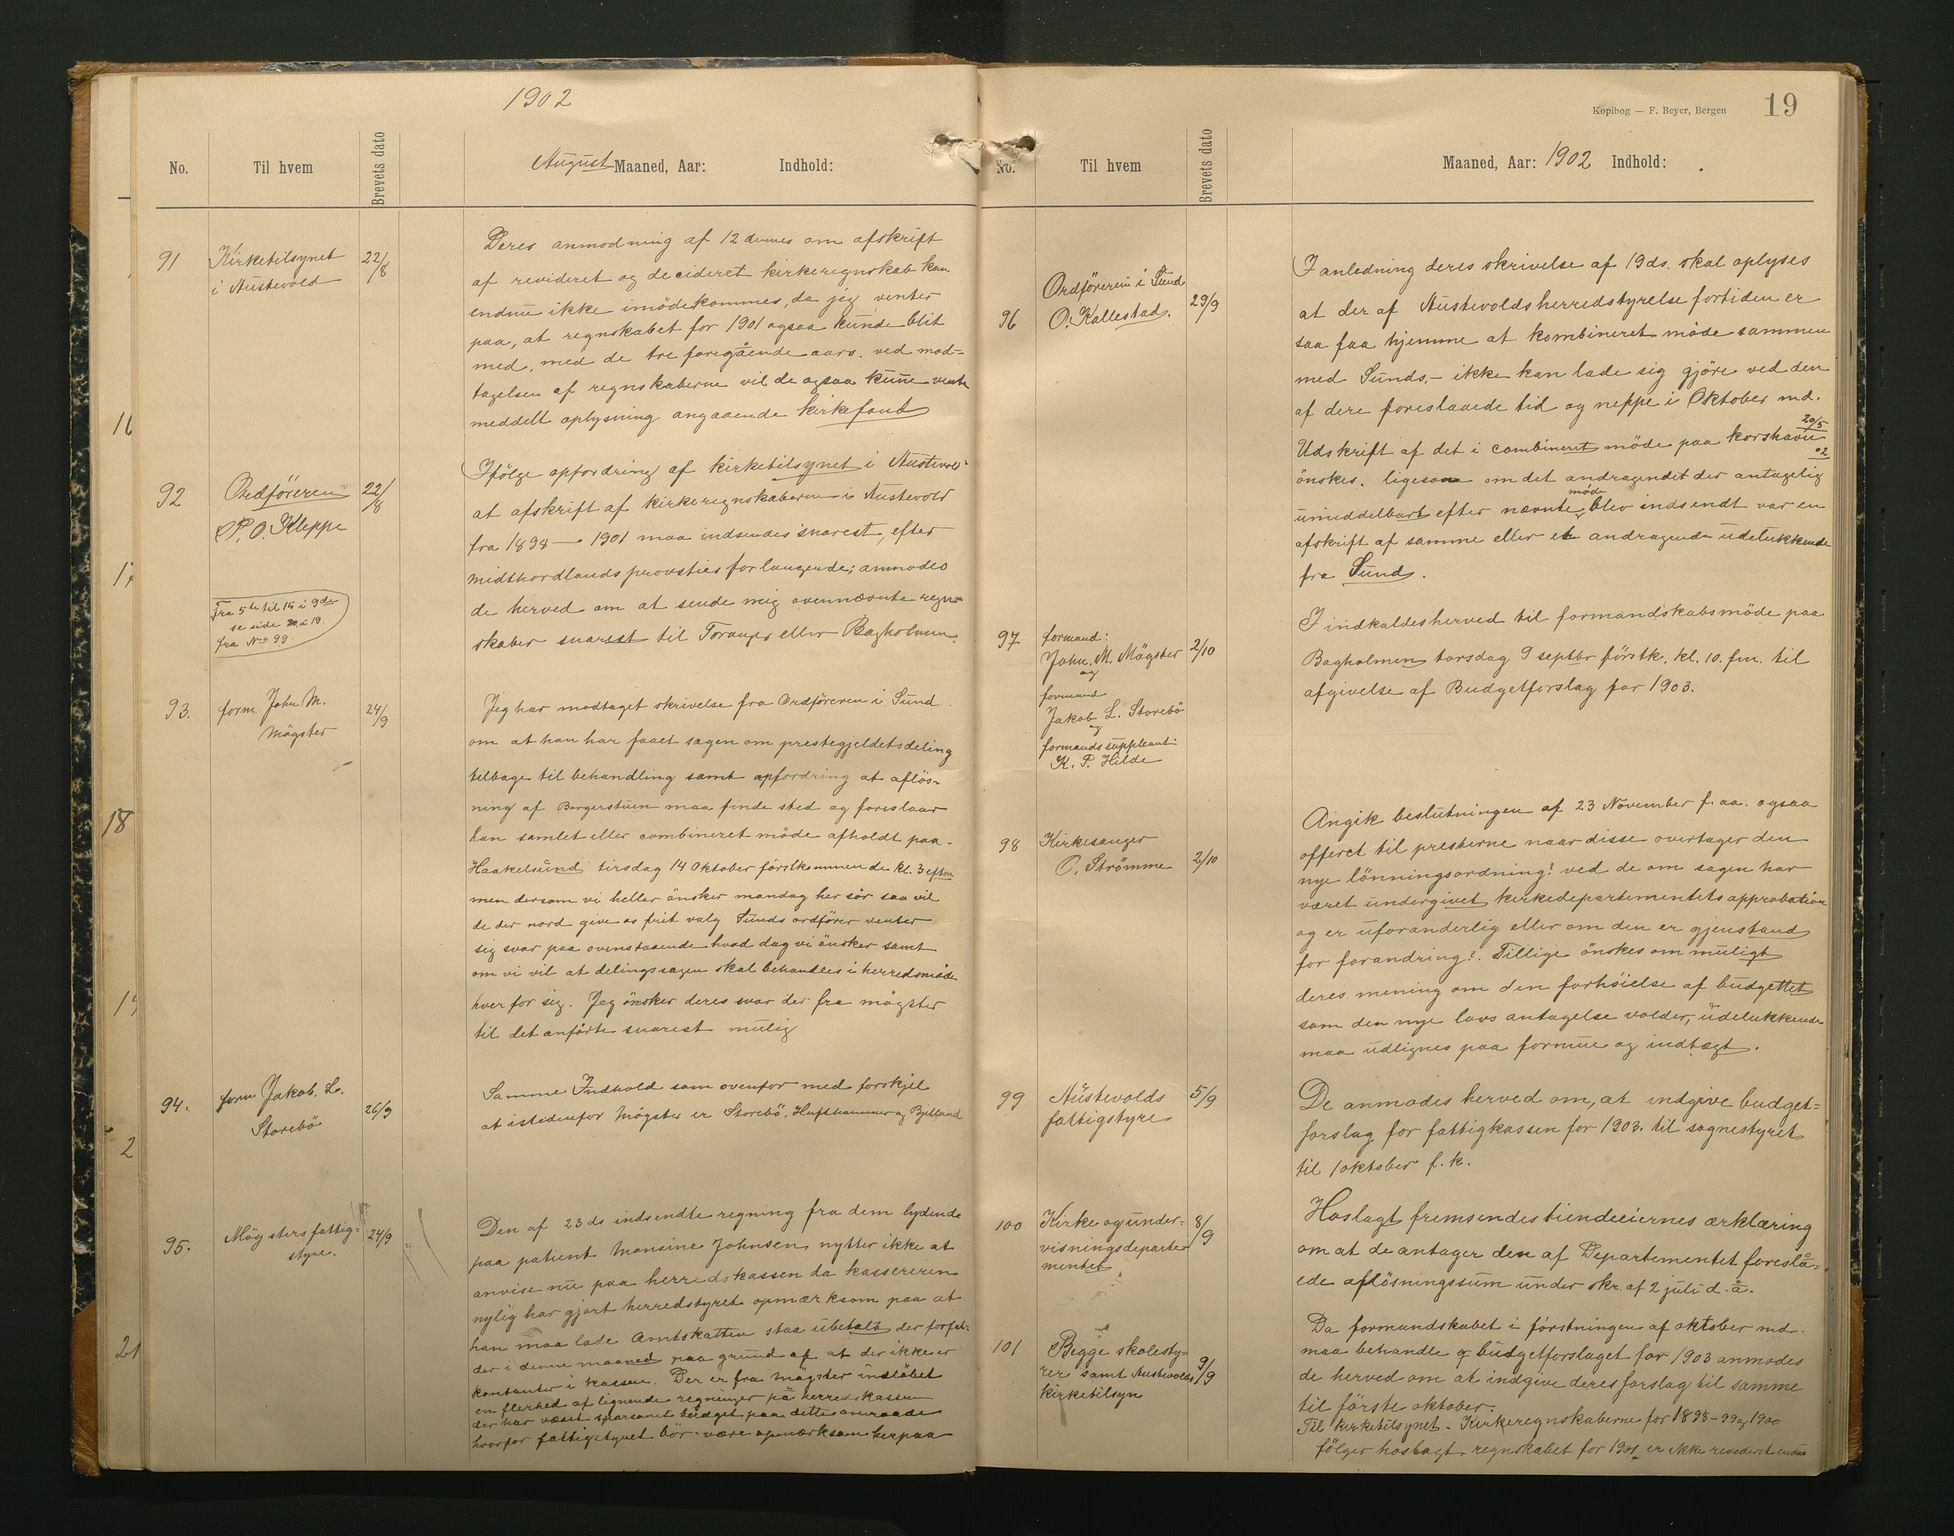 1902
No.
Til hvem
Brevets dato
August Maaned, Aar: Indhold:
91
Kirketilsynet
i Austevold
22/8
Deres anmodning af 12 dennes om afskrift
af revideret og decideret kirkeregnskab kan
endnu ikke imödekommes, da jeg venter
paa, at regnskabet for 1901 ogsaa kunde blit
med, med de tre foregående aars. ved mod=
tagelsen af regnskaberne vil de ogsaa kune vente
meddelt oplysning angaaende kirkefond
92
Ordföreren
P. O. Kleppe
22/8
Ifölge opfordring af kirketilsynet i Austevold
at afskrift af kirkeregnskaberne i Austevold
fra 1898 - 1901 maa indsendes snarest, efter
midthordlands provsties forlangende; anmodes
de herved om at sende mig ovennævnte regn=
skaber snarest til Torangs eller Bagholmen.
Fra 5te til 14 i 9de
se side 19
fra No 99.
93.
form. John M.
Mögster
24/9
Jeg har modtaget skrivelse fra Ordföreren i Sund
om at han har faaet sagen om prestegjeldets deling
tilbage til behandling samt opfordring at aflös=
ning af Borgerstuen maa finde sted og foreslaar
han samlet eller combineret möde afholdt paa
Haakelsund tirsdag 14 Oktober förstkommende kl. 3 efterm
men dersom vi heller önsker mandag her sör saa vil
de der nord give os frit valg Sunds ordförer venter
sig svar paa ovenstaaende hvad dag vi önsker samt
om vi vil at delingssagen skal behandles i herredsmöde
hver for sig. Jeg önsker deres svar der fra mögster
til det anförte snarest mulig
94.
form Jakob. L.
Storebö
26/9
Samme Indhold som ovenfor med forskjel
at istedenfor Mögster er Storebö, Huftshammer og Bjelland
95.
Mögsters fattig=
styre.
24/9
Den af 23 ds indsendte regning fra dem lydende
paa patient Monsine Johnsen nytter ikke at
anvise nu paa herredskassen da kassereren
nylig har gjort herredstyret opmærksom paa at
han maa lade Amtskatten staa ubetalt der forfal=
der i denne maaned paa grund af at der ikke er
kontanter i kassen. Der er fra mögster indlöbet
en flerhed af lignende regninger på herredskassen
der har været sparsomt budget paa dette omraade
hvorfor fattigstyret bör være opmærksom herpaa
Kopibog — F. Beyer, Bergen
19
No.
Til hvem
Brevets dato
Maaned, Aar: 1902 Indhold:
96
Ordföreren i Sund
O. Kallestad.
29/9
I anledning deres skrivelse af 19 ds. skal oplyses
at der af Austevolds herredstyrelse fortiden er
saa faa hjemme at kombineret möde sammen
med Sunds,- ikke kan lade sig gjöre ved den
af dere foreslaaede tid og neppe i Oktober md.
Udskrift af det i combineret möde paa korshavn 20/5 02
önskes, ligesom om det andragendet der antagelig
umiddelbart efter nævnte möde blev indsendt var en
afskrift af samme eller et andragende udelukkende
fra Sund.
97
formand:
John. M. Mögster
og
formand
Jakob L. Storebö
og
formandssuppleant:
K. P. Hilde
2/10
I indkaldes herved til formandskabsmöde paa
Bagholmen torsdag 9 septbr förstk. kl. 10. fm. til
afgivelse af Budgetforslag for 1903.
98
Kirkesanger
P. Strömme
2/10
Angik beslutningen af 23 November f. aa. ogsaa
offeret til presterne naar disse overtager den
nye lönningsordning? ved de om sagen har
været undergivet kirkedepartementets approbation
og er uforanderlig eller om den er gjenstand
for forandring?. Tillige önskes om muligt
deres mening om den forhöielse af budgettet
som den nye lovs antagelse volder, udelukkende
maa udlignes paa formue og indtægt.
99
Austevolds
fattigstyre
5/9
De anmodes herved om, at indgive budget=
forslag for fattigkassen for 1903. til sognestyret
til 1 oktober f. k.
100
Kirke og under-
visningsdeparte
mentet
8/9
Hoslagt fremsendes tiendeeiernes erklæring
om at de antager den af Departementet foreslå=
ede aflösningssum under skr. af 2 juli d. å.
101
Begge skolesty-
rer samt Austevolds
kirketilsyn
9/9
Da formandskabet i förstningen af oktober md.
maa behandle budgetforslaget for 1903 anmodes
de herved om at indgive deres forslag til samme
til förste oktober.
Til kirketilsynet. Kirkeregnskaberne for 1898-99 og 1900
fölger hoslagt, regnskabet for 1901 er ikke revideret endnu